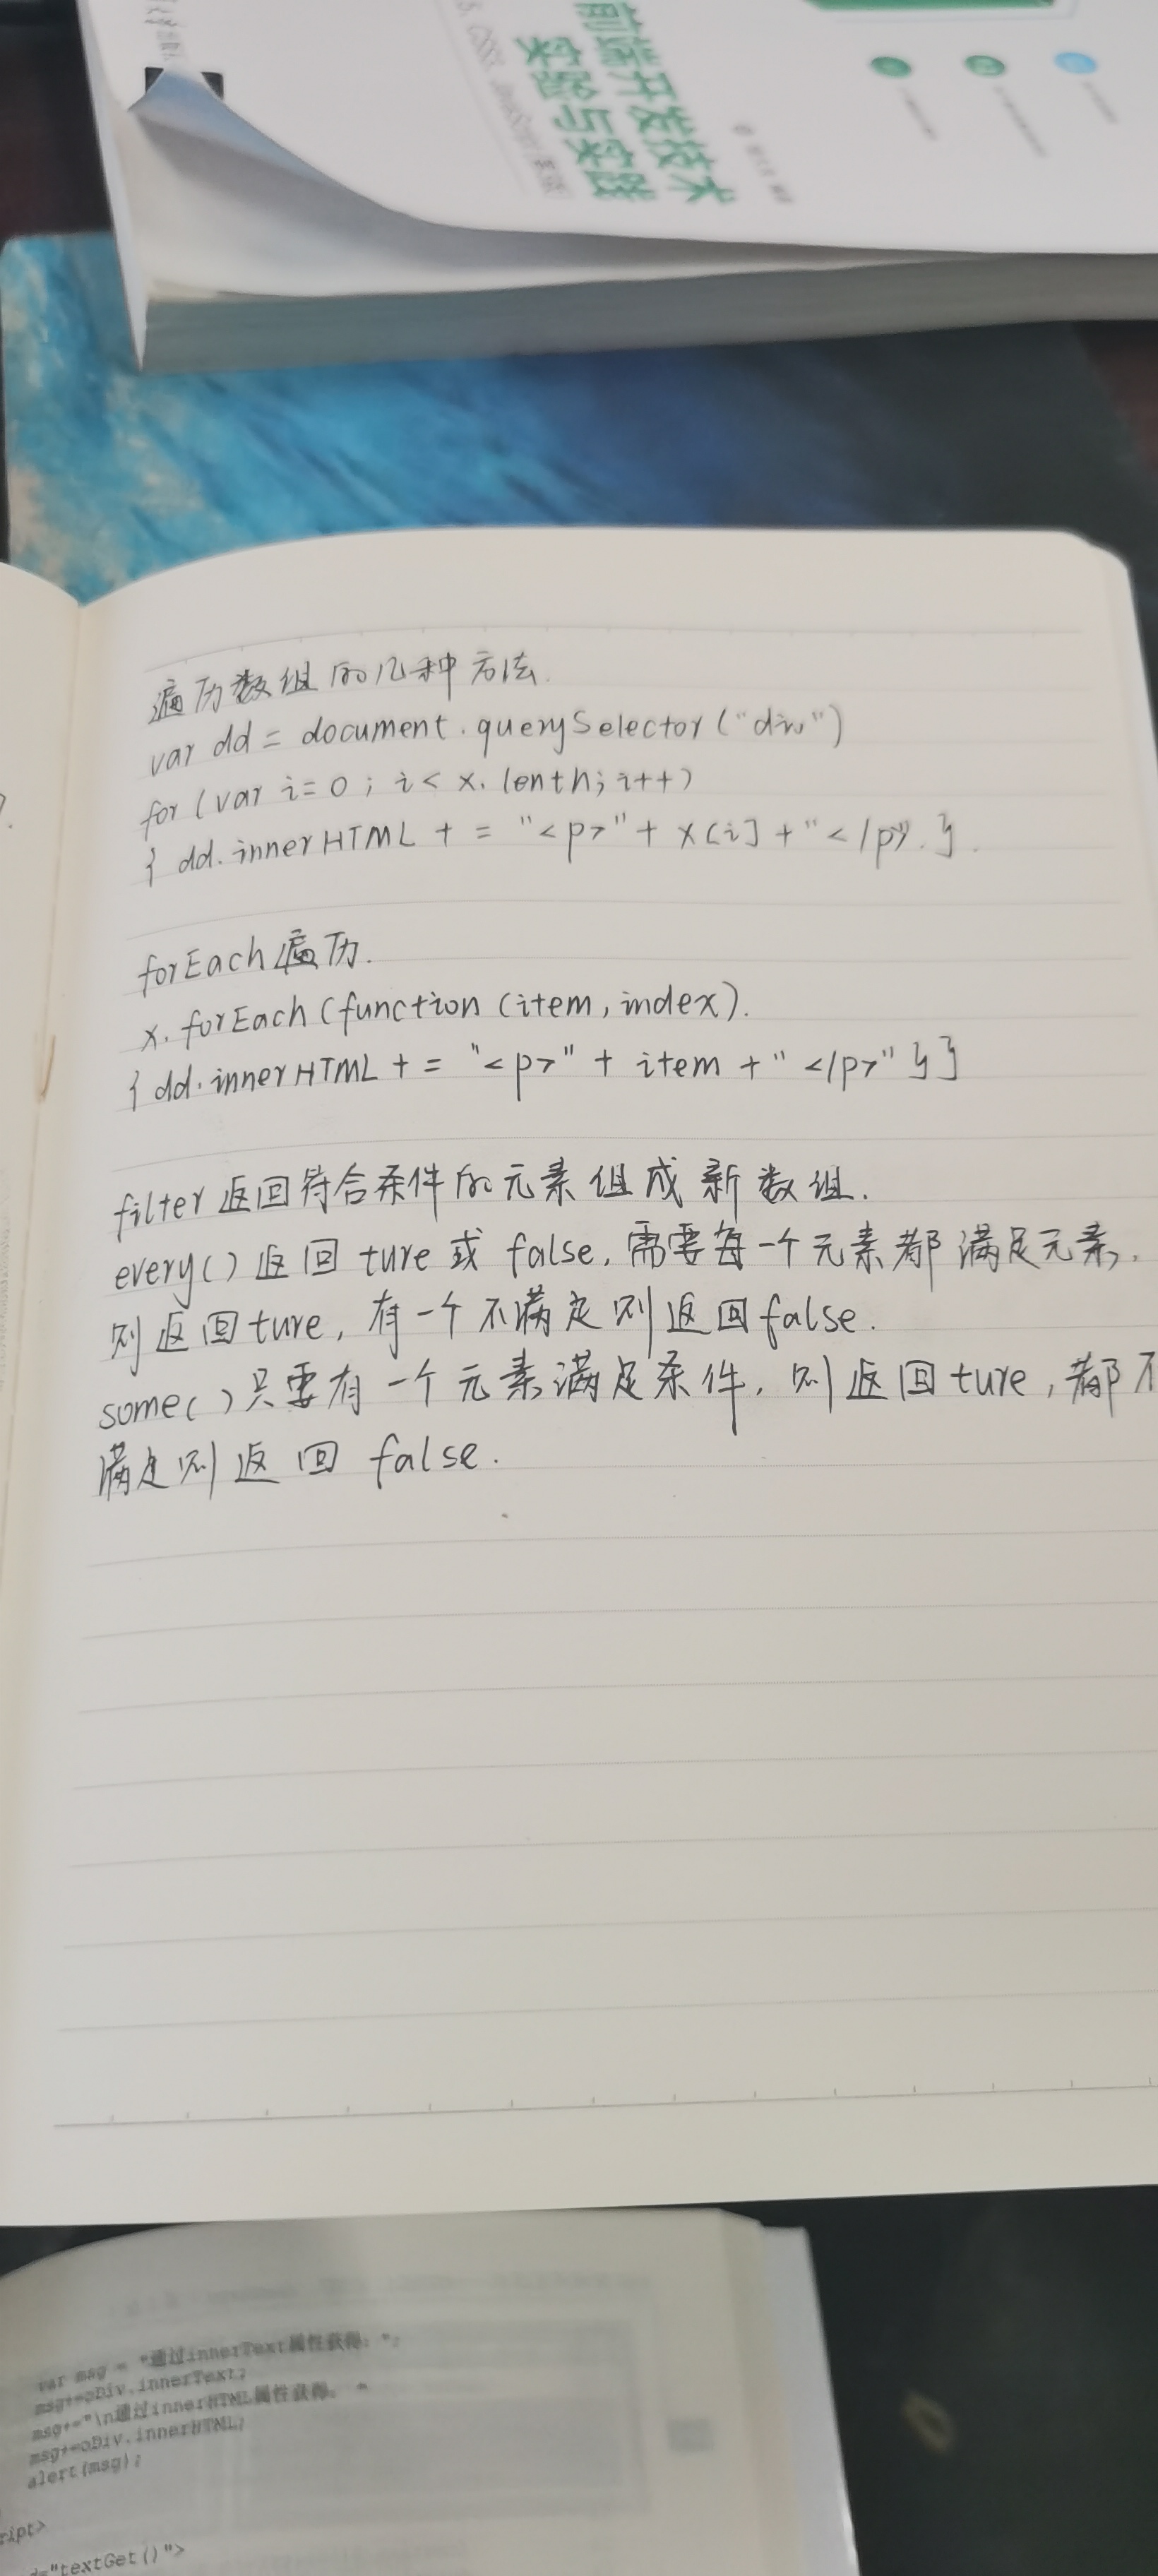 前端开发技术
实验与实践
JavaScript
遍历数组的几种方法.
var dd = document.querySelector("div")
for (var i=0; i< x.lenth; i++)
{ dd.innerHTML += "<p>"+ x[i] +"</p>".}.
forEach遍历.
x.forEach(function (item, index).
{ dd.innerHTML += "<p>" + item +" </p>" }]
filter返回符合条件的元素组成新数组.
every()返回 ture 或 false, 需要每一个元素都满足元素,
则返回ture, 有一个不满足则返回false.
some()只要有一个元素满足条件, 则返回ture, 都不
满足则返回 false.
var msg = "通过innerText属性获得: ";
msg+=oDiv.innerText;
msg+="\n通过innerHTML属性获得: "
msg+=oDiv.innerHTML;
alert(msg);
ript>
d="textGet()">